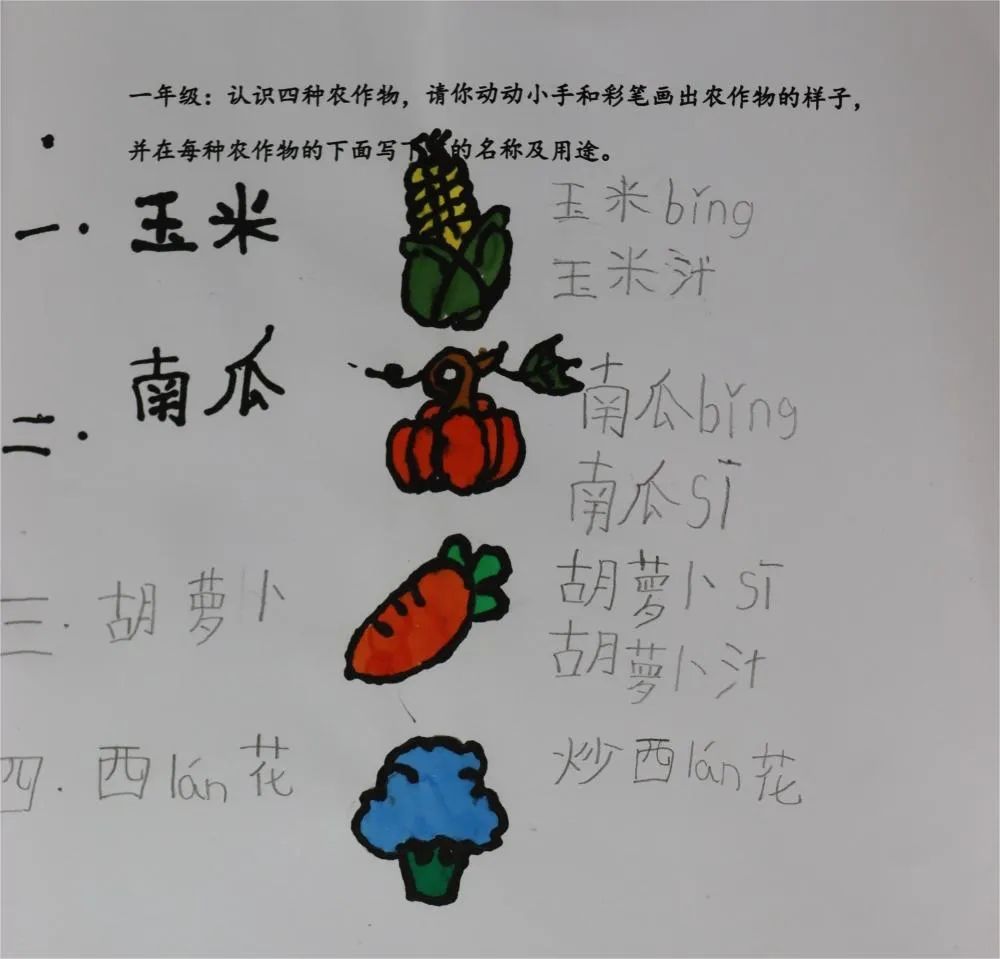 一年级：认识四种农作物，请你动动小手和彩笔画出农作物的样子，
并在每种农作物的下面写下的名称及用途。
一. 玉米
玉米bǐng
玉米汁
二. 南瓜
南瓜bǐng
南瓜sī
三. 胡萝卜
胡萝卜sī
胡萝卜汁
四. 西lán花
炒西lán花